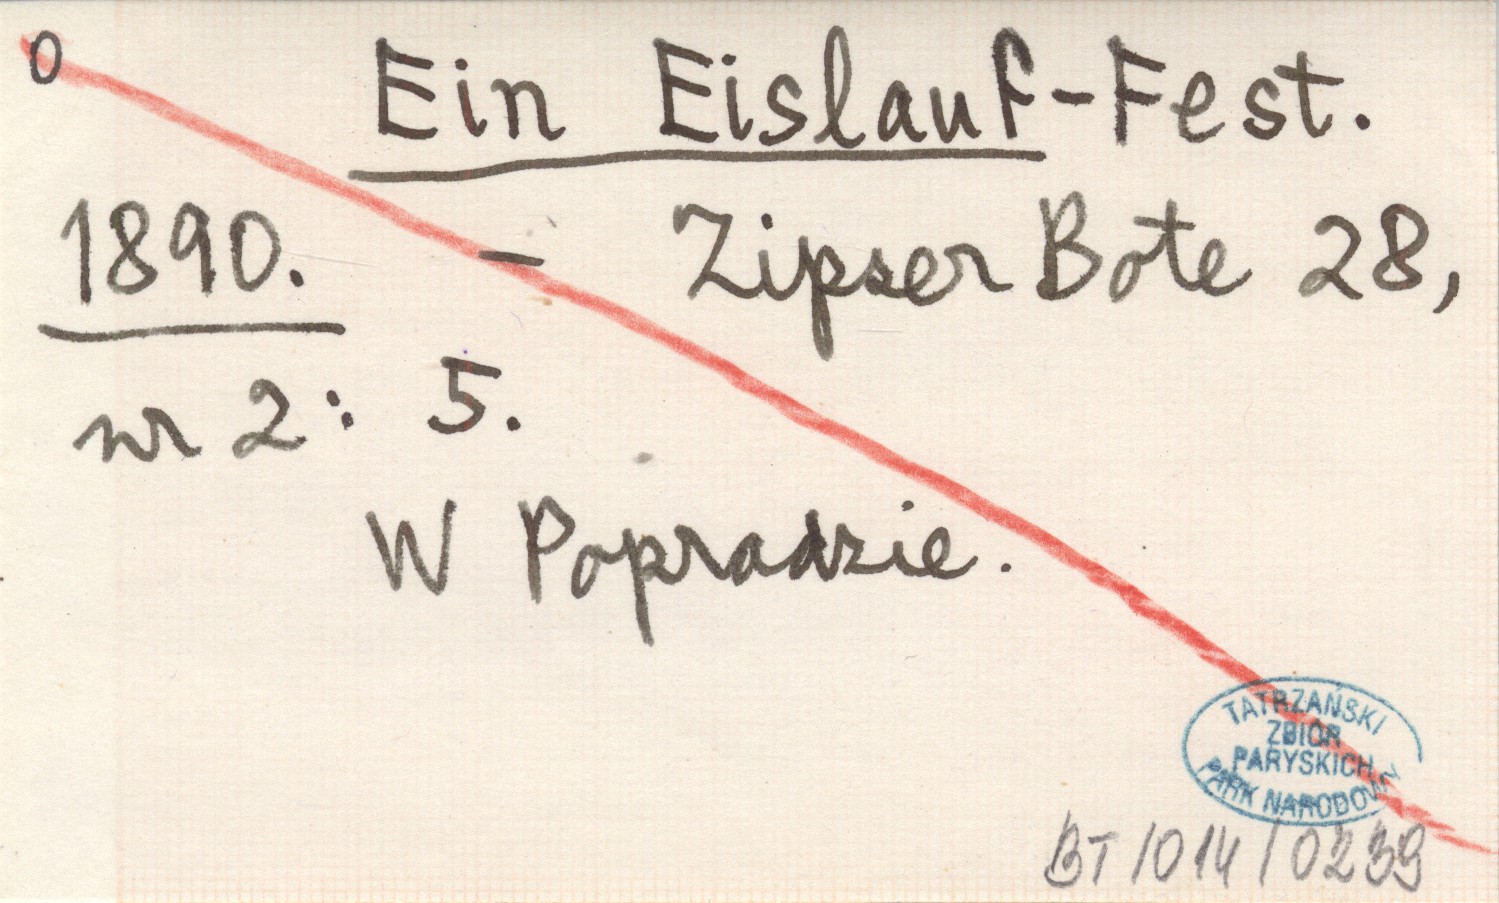 0 Ein Eislauf-Fest.
1890. – Zipser Bote 28,
nr 2: 5.
W Popradzie.
TATRZAŃSKI
ZBIÓR
PARYSKICH
PARK NARODOWY
BT/014/0239